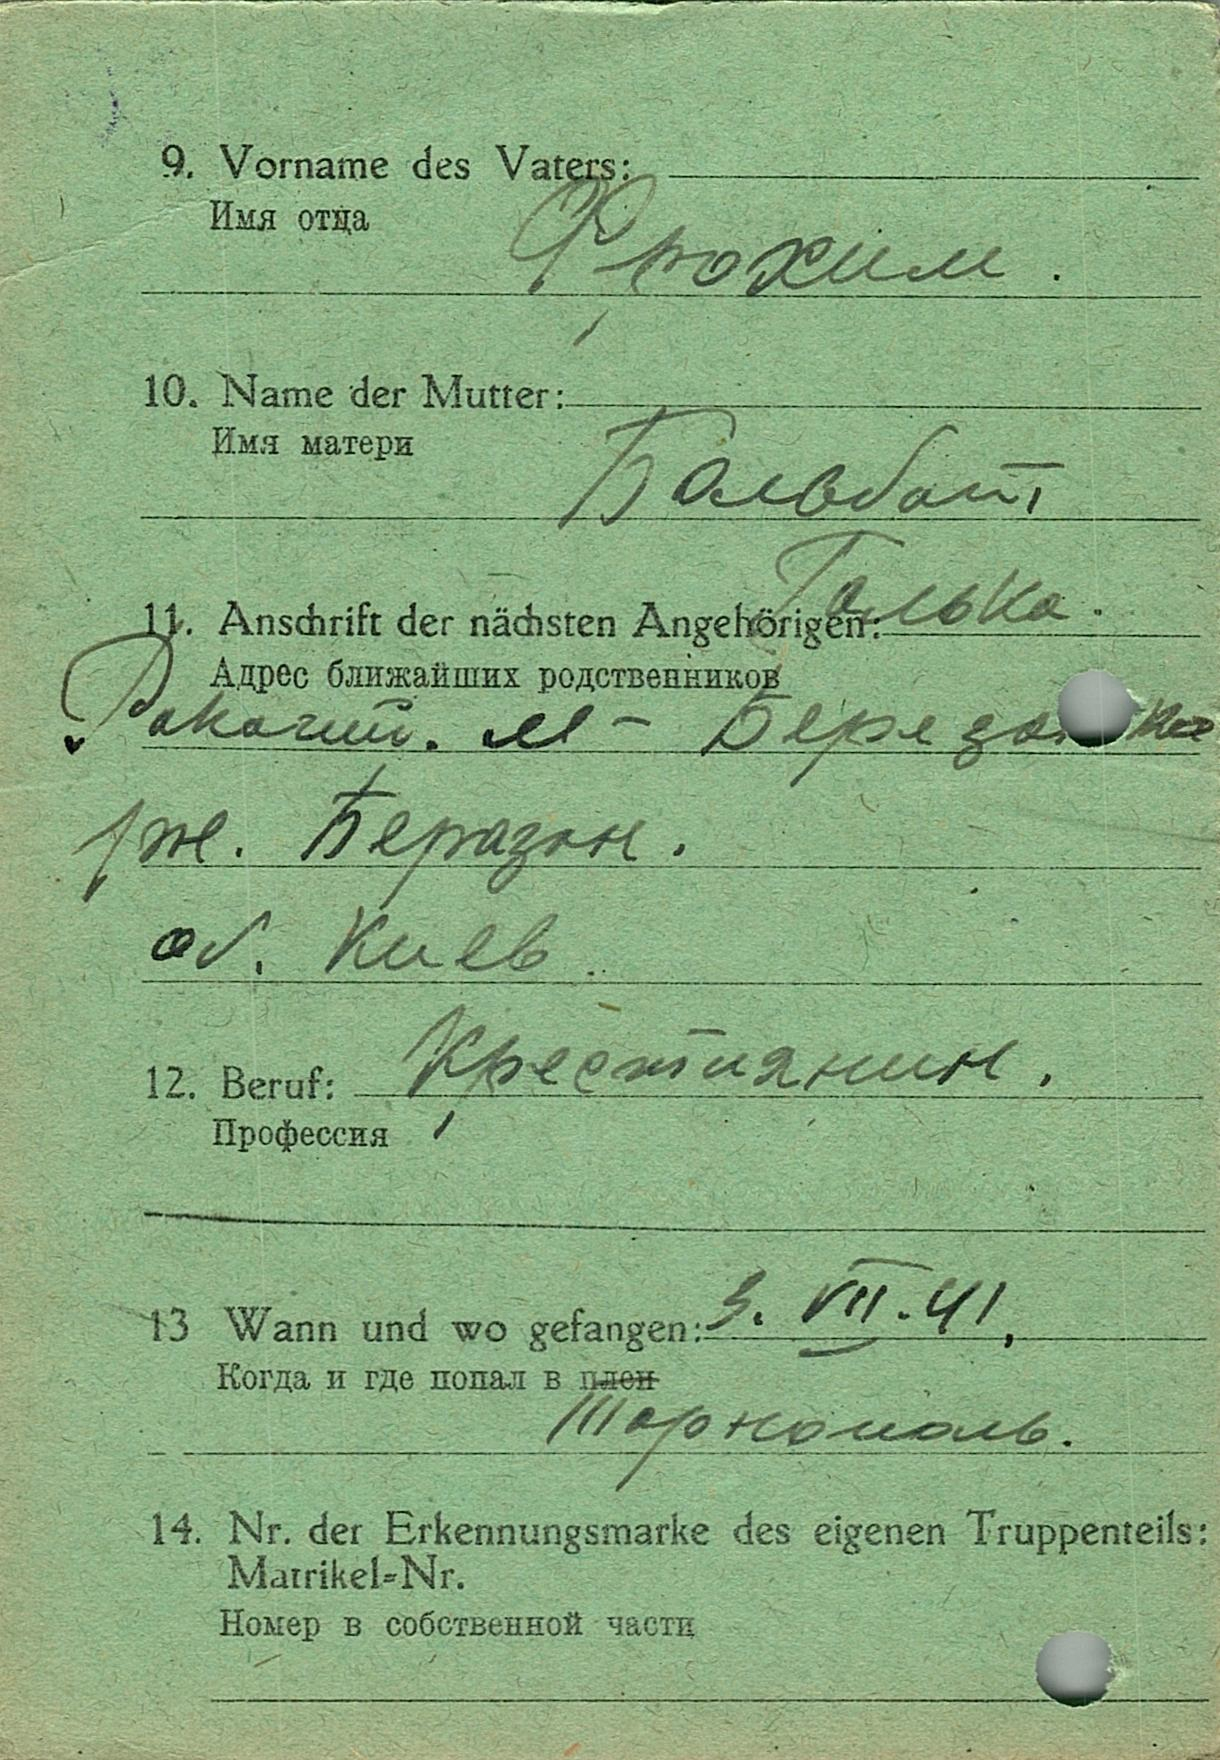 9. Vorname des Vaters:
Имя отца
Фрохим.
10. Name der Mutter:
Имя матери
Галька.
11. Anschrift der nächsten Angehörigen:
Адрес ближайших родственников
м-
об. Киев
12. Beruf: Крестиянин.
Профессия
13 Wann und wo gefangen: 3. VII. 41,
Когда и где попал в плен
Тарнополь.
14. Nr. der Erkennungsmarke des eigenen Truppenteils:
Matrikel-Nr.
Номер в собственной части